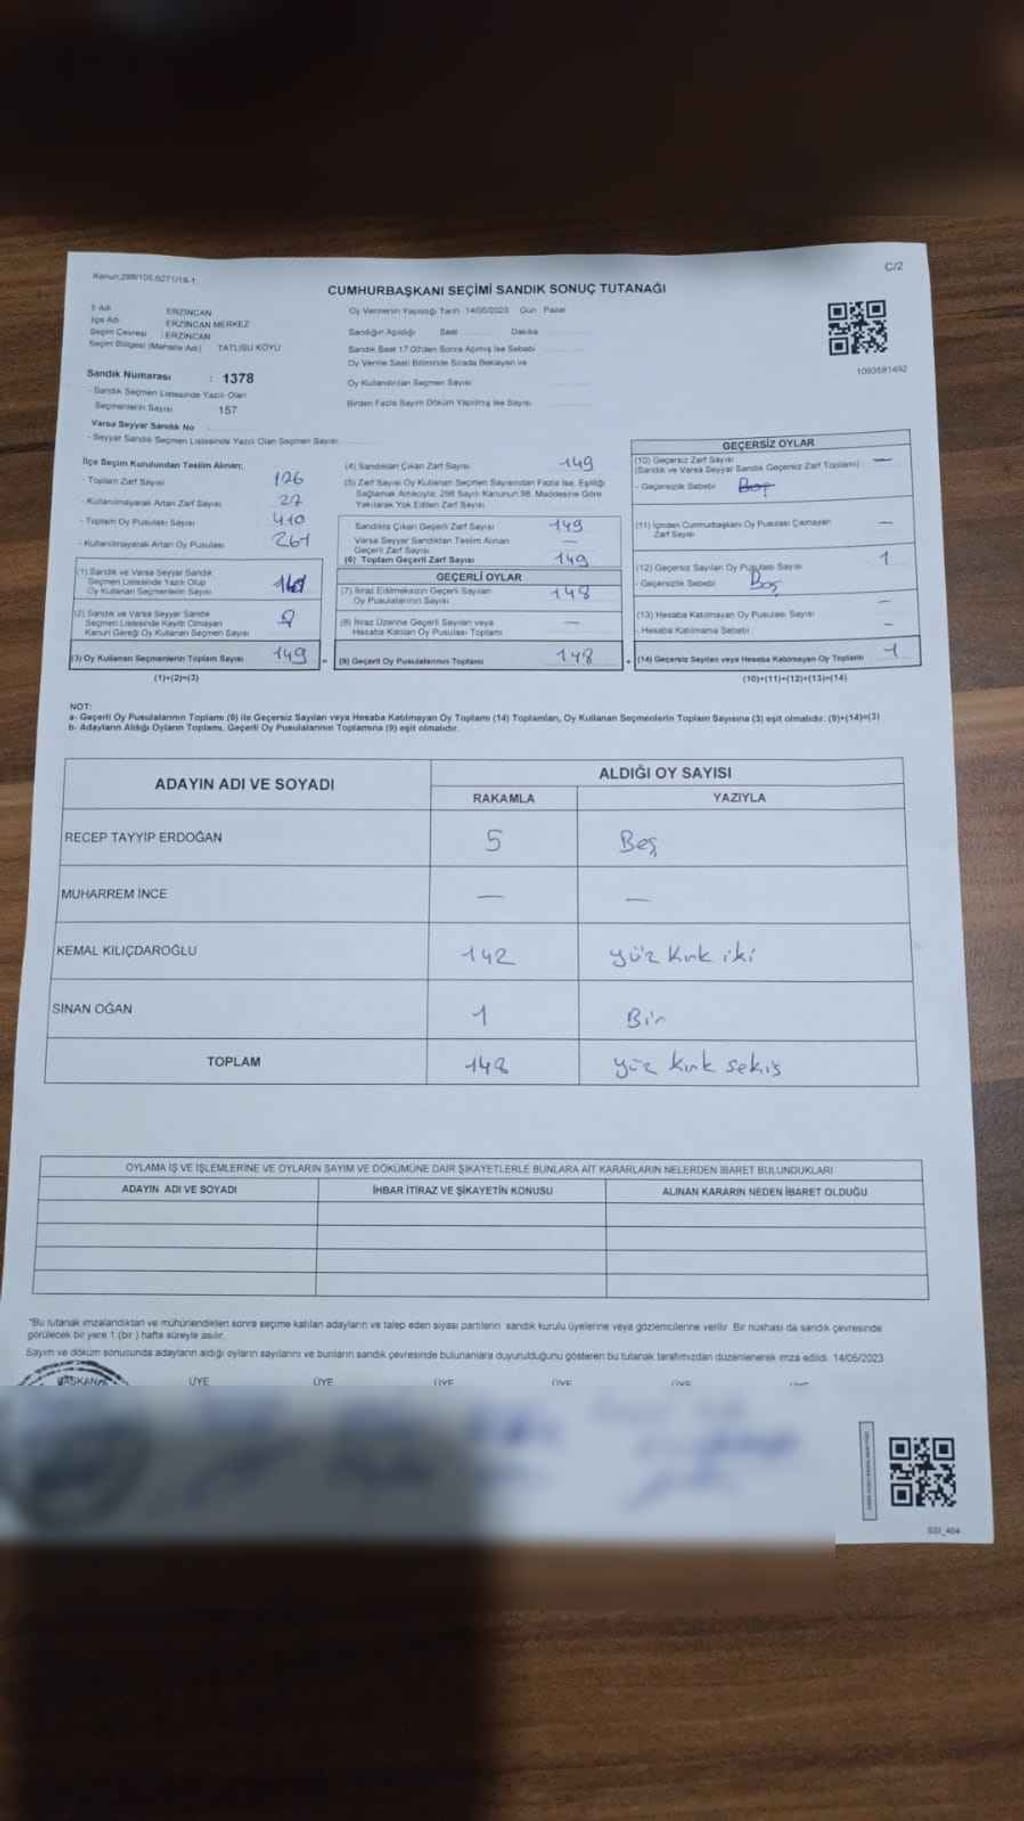 Kanun:298/105,6271/18-1
C/2
CUMHURBAŞKANI SEÇİMİ SANDIK SONUÇ TUTANAĞI
İl Adı : ERZİNCAN
İlçe Adı : ERZİNCAN MERKEZ
Seçim Çevresi : ERZİNCAN
Seçim Bölgesi (Mahalle Adı) : TATLISU KÖYÜ
Oy Vermenin Yapıldığı Tarih : 14/05/2023 Gün : Pazar
Sandığın Açıldığı Saat Dakika
Sandık Saat 17.00'den Sonra Açılmış İse Sebebi
Oy Verme Saati Bitiminde Sırada Bekleyen ve
Oy Kullandırılan Seçmen Sayısı
Birden Fazla Sayım Döküm Yapılmış İse Sayısı
1093581492
Sandık Numarası : 1378
- Sandık Seçmen Listesinde Yazılı Olan
Seçmenlerin Sayısı 157
Varsa Seyyar Sandık No
- Seyyar Sandık Seçmen Listesinde Yazılı Olan Seçmen Sayısı
İlçe Seçim Kurulundan Teslim Alınan;
- Toplam Zarf Sayısı
- Kullanılmayarak Artan Zarf Sayısı 27
- Toplam Oy Pusulası Sayısı 410
- Kullanılmayarak Artan Oy Pusulası 261
(1) Sandık ve Varsa Seyyar Sandık
Seçmen Listesinde Yazılı Olup
Oy Kullanan Seçmenlerin Sayısı
(2) Sandık ve Varsa Seyyar Sandık
Seçmen Listesinde Kayıtlı Olmayan
Kanun Gereği Oy Kullanan Seçmen Sayısı
(3) Oy Kullanan Seçmenlerin Toplam Sayısı 149
(1)+(2)=(3)
(4) Sandıktan Çıkan Zarf Sayısı 149
(5) Zarf Sayısı Oy Kullanan Seçmen Sayısından Fazla İse, Eşitliği
Sağlamak Amacıyla, 298 Sayılı Kanunun 98. Maddesine Göre
Yakılarak Yok Edilen Zarf Sayısı
Sandıkta Çıkan Geçerli Zarf Sayısı 149
Varsa Seyyar Sandıktan Teslim Alınan
Geçerli Zarf Sayısı —
(6) Toplam Geçerli Zarf Sayısı 149
GEÇERLİ OYLAR
(7) İtiraz Edilmeksizin Geçerli Sayılan
Oy Pusulalarının Sayısı 148
(8) İtiraz Üzerine Geçerli Sayılan veya
Hesaba Katılan Oy Pusulası Toplamı —
= (9) Geçerli Oy Pusulalarının Toplamı 148
GEÇERSİZ OYLAR
(10) Geçersiz Zarf Sayısı —
(Sandık ve Varsa Seyyar Sandık Geçersiz Zarf Toplamı)
- Geçersizlik Sebebi Boş
(11) İçinden Cumhurbaşkanı Oy Pusulası Çıkmayan
Zarf Sayısı —
(12) Geçersiz Sayılan Oy Pusulası Sayısı 1
- Geçersizlik Sebebi Boş
(13) Hesaba Katılmayan Oy Pusulası Sayısı —
- Hesaba Katılmama Sebebi —
+ (14) Geçersiz Sayılan veya Hesaba Katılmayan Oy Toplamı 1
(10)+(11)+(12)+(13)=(14)
NOT:
a- Geçerli Oy Pusulalarının Toplamı (9) ile Geçersiz Sayılan veya Hesaba Katılmayan Oy Toplamı (14) Toplamları, Oy Kullanan Seçmenlerin Toplam Sayısına (3) eşit olmalıdır. (9)+(14)=(3)
b- Adayların Aldığı Oyların Toplamı, Geçerli Oy Pusulalarının Toplamına (9) eşit olmalıdır.
ADAYIN ADI VE SOYADI
ALDIĞI OY SAYISI
RAKAMLA YAZIYLA
RECEP TAYYİP ERDOĞAN 5 Beş
MUHARREM İNCE — —
KEMAL KILIÇDAROĞLU 142 yüz kırk iki
SİNAN OĞAN 1 Bir
TOPLAM 148 yüz kırk sekiz
OYLAMA İŞ VE İŞLEMLERİNE VE OYLARIN SAYIM VE DÖKÜMÜNE DAİR ŞİKAYETLERLE BUNLARA AİT KARARLARIN NELERDEN İBARET BULUNDUKLARI
ADAYIN ADI VE SOYADI İHBAR İTİRAZ VE ŞİKAYETİN KONUSU ALINAN KARARIN NEDEN İBARET OLDUĞU
*Bu tutanak imzalandıktan ve mühürlendikten sonra seçime katılan adayların ve talep eden siyasi partilerin sandık kurulu üyelerine veya gözlemcilerine verilir. Bir nüshası da sandık çevresinde
görülecek bir yere 1 (bir ) hafta süreyle asılır.
Sayım ve döküm sonucunda adayların aldığı oyların sayılarını ve bunların sandık çevresinde bulunanlara duyurulduğunu gösteren bu tutanak tarafımızdan düzenlenerek imza edildi. 14/05/2023
BAŞKAN ÜYE ÜYE ÜYE ÜYE ÜYE